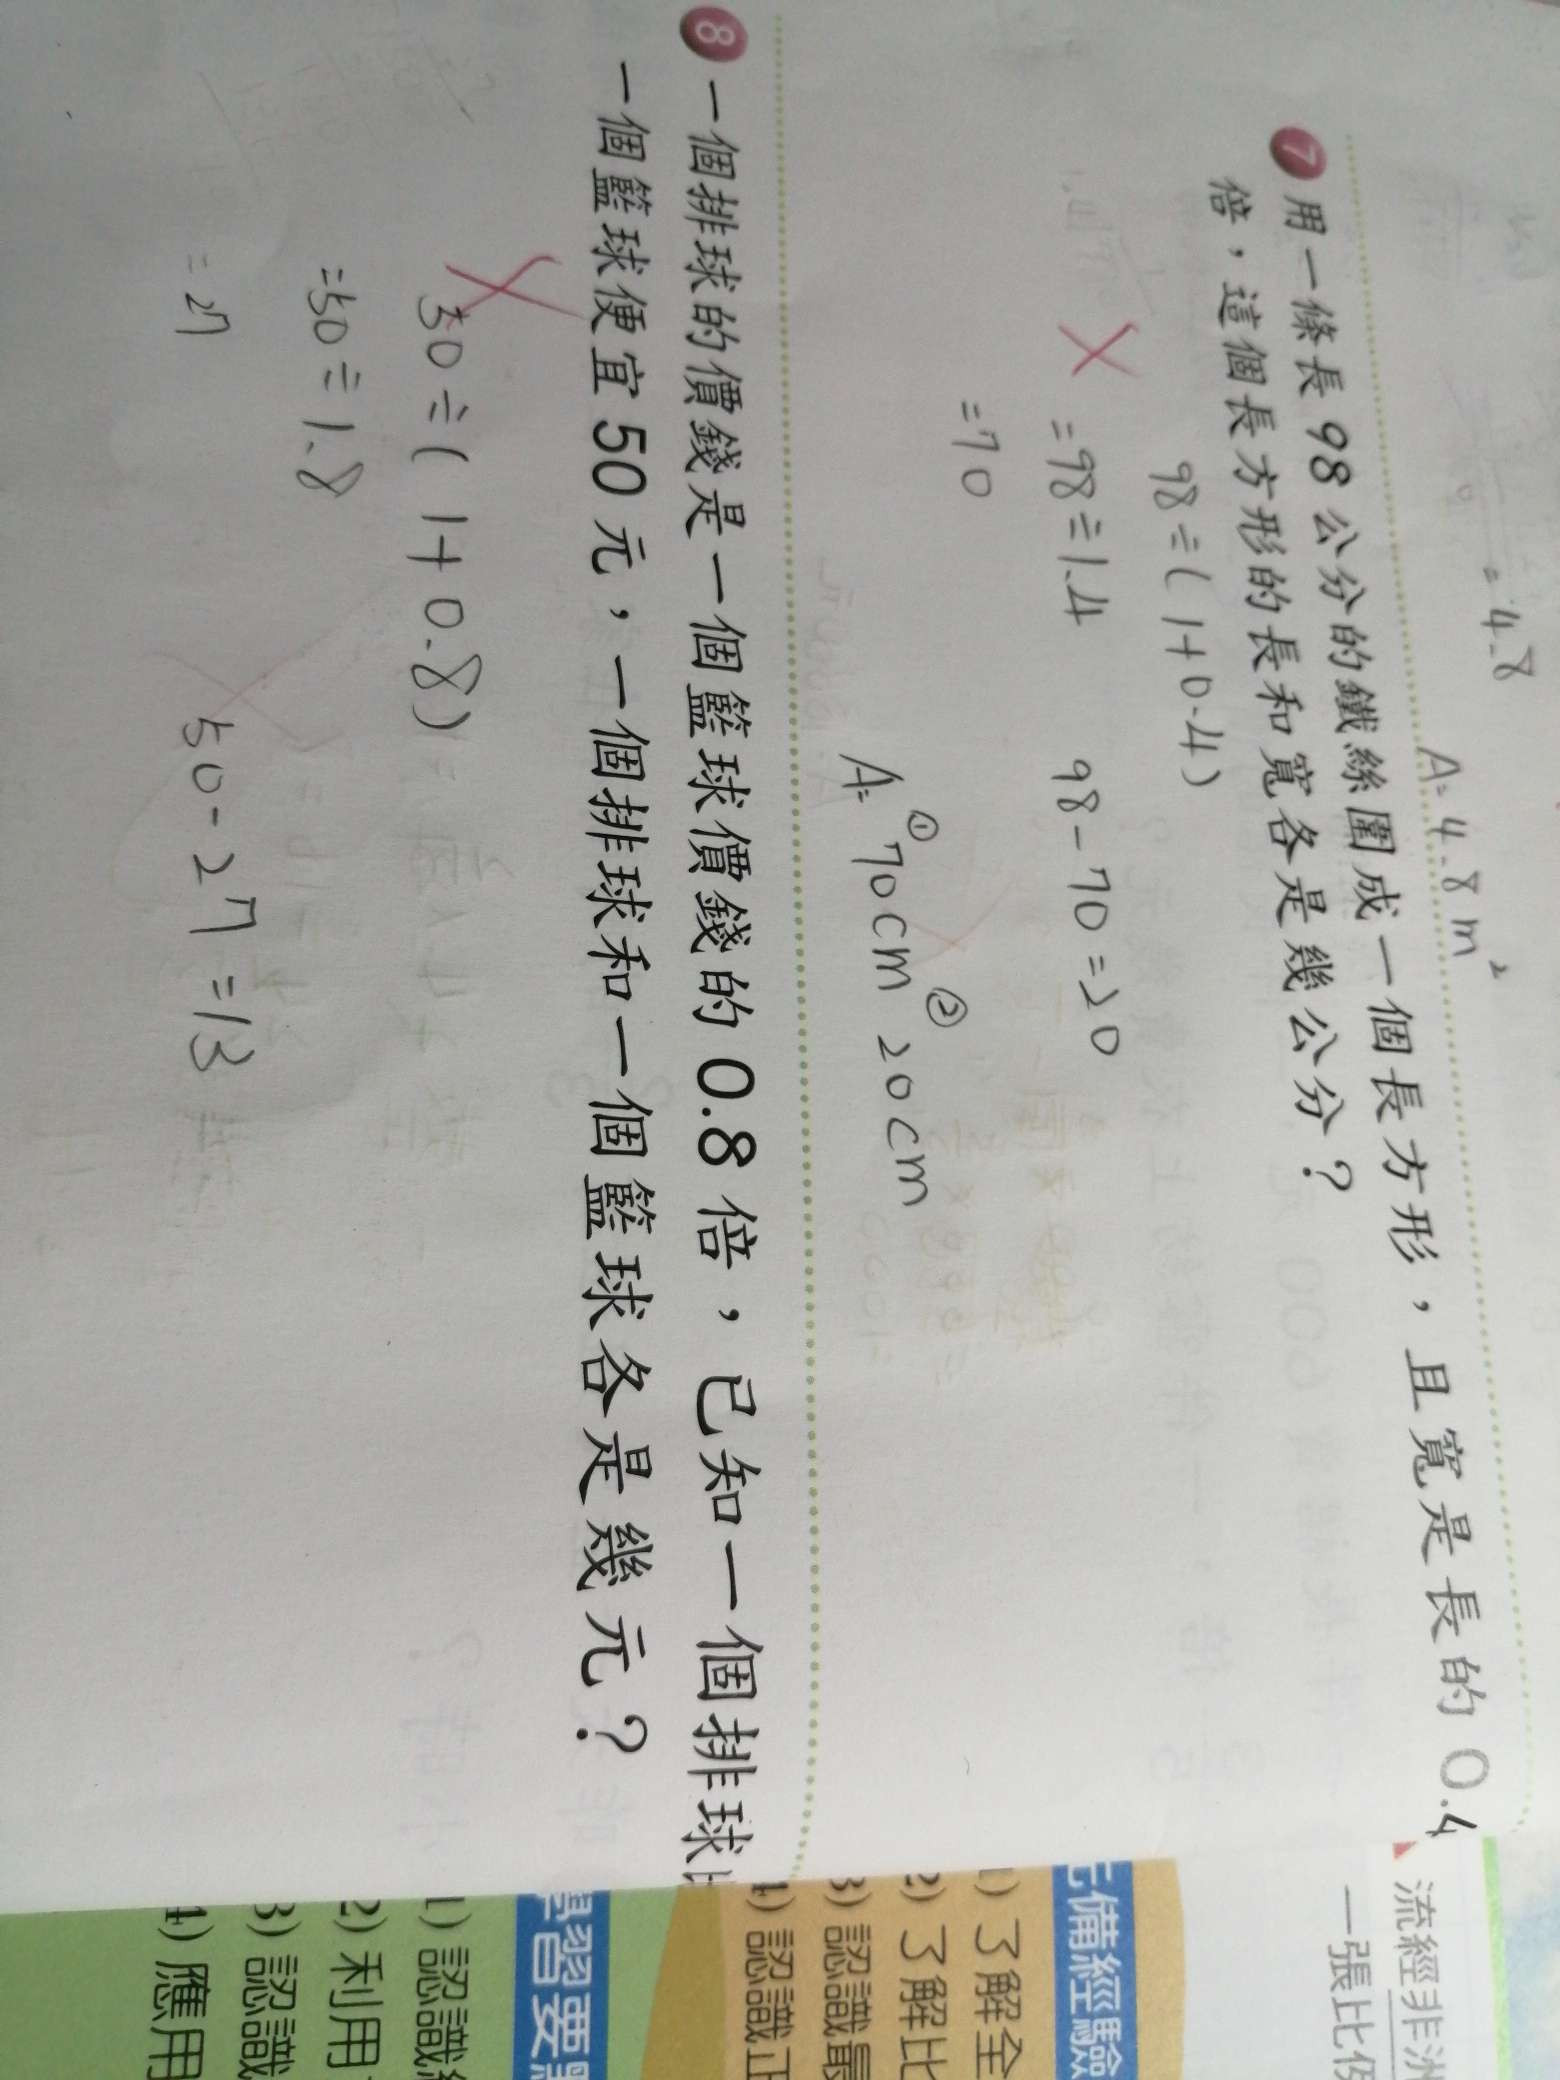 =4.8
A=4.8m²
7 用一條長98公分的鐵絲圍成一個長方形，且寬是長的0.4
倍，這個長方形的長和寬各是幾公分？
98÷(1+0.4)
=98÷1.4
98-70=20
=70
A=①70cm ②20cm
8 一個排球的價錢是一個籃球價錢的0.8倍，已知一個排球比
一個籃球便宜50元，一個排球和一個籃球各是幾元？
50÷(1+0.8)
=50÷1.8
=27
50-27=13
流經非洲
一張比例
先備經驗
1) 了解全
2) 了解比
3) 認識最
4) 認識正
學習要點
1) 認識
2) 利用
3) 認識
4) 應用